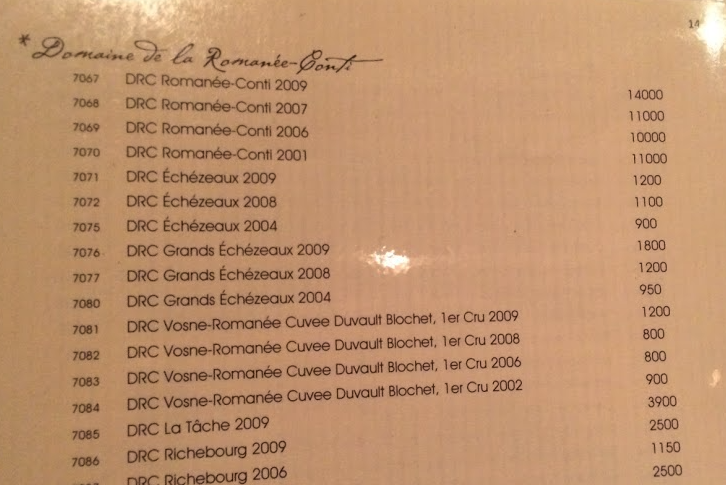 14
* Domaine de la Romanée-Conti
7067 DRC Romanée-Conti 2009 14000
7068 DRC Romanée-Conti 2007 11000
7069 DRC Romanée-Conti 2006 10000
7070 DRC Romanée-Conti 2001 11000
7071 DRC Échézeaux 2009 1200
7072 DRC Échézeaux 2008 1100
7075 DRC Échézeaux 2004 900
7076 DRC Grands Échézeaux 2009 1800
7077 DRC Grands Échézeaux 2008 1200
7080 DRC Grands Échézeaux 2004 950
7081 DRC Vosne-Romanée Cuvee Duvault Blochet, 1er Cru 2009 1200
7082 DRC Vosne-Romanée Cuvee Duvault Blochet, 1er Cru 2008 800
7083 DRC Vosne-Romanée Cuvee Duvault Blochet, 1er Cru 2006 800
7084 DRC Vosne-Romanée Cuvee Duvault Blochet, 1er Cru 2002 900
7085 DRC La Tâche 2009 3900
7086 DRC Richebourg 2009 2500
DRC Richebourg 2006 1150
2500